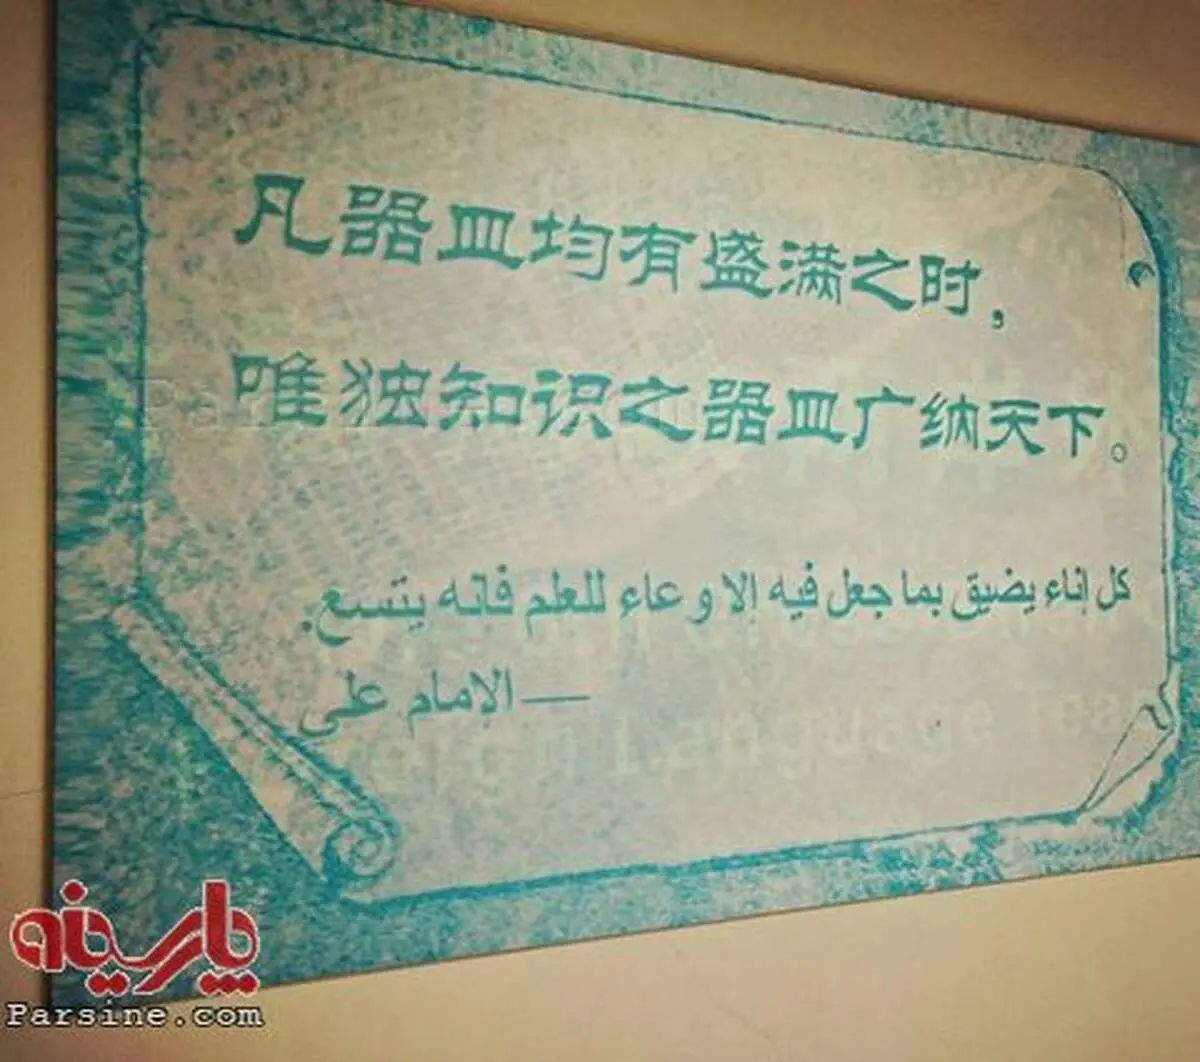 凡器皿均有盛满之时，
唯独知识之器皿广纳天下。
كل إناء يضيق بما جعل فيه إلا وعاء للعلم فانه يتسع.
— الإمام علي
Language Tea
پارسینه
Parsine.com